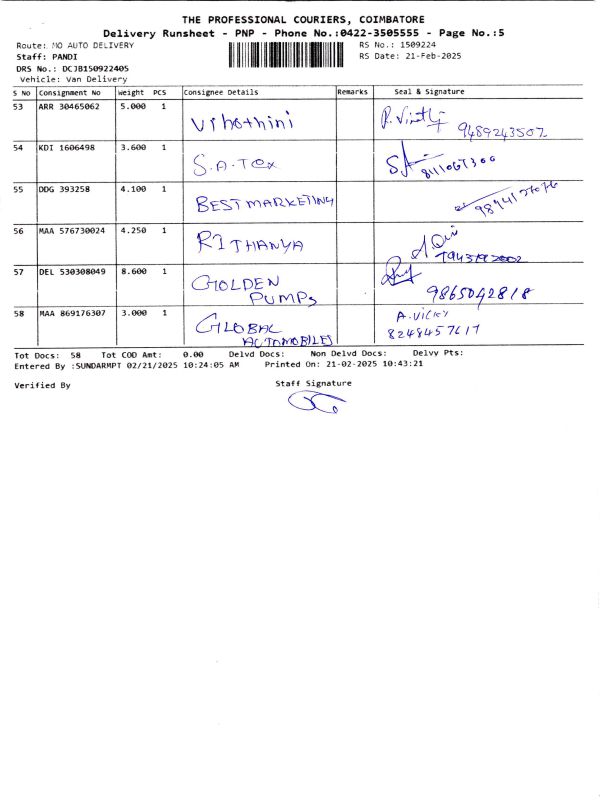 THE PROFESSIONAL COURIERS, COIMBATORE
Delivery Runsheet - PNP - Phone No.:0422-3505555 - Page No.:5
Route: MO AUTO DELIVERY
RS No.: 1509224
Staff: PANDI
RS Date: 21-Feb-2025
DRS No.: DCJB150922405
Vehicle: Van Delivery
S No Consignment No Weight PCS Consignee Details Remarks Seal & Signature
53 ARR 30465062 5.000 1
9489243507
54 KDI 1606498 3.600 1 S.A.Tex
55 DDG 393258 4.100 1 BEST MARKETING
56 MAA 576730024 4.250 1 RITHANYA
57 DEL 530308049 8.600 1 GOLDEN
PUMPs 9865042818
58 MAA 869176307 3.000 1 GLOBAL A.Vicky
AUTOMOBILES 8248457617
Tot Docs: 58 Tot COD Amt: 0.00 Delvd Docs: Non Delvd Docs: Delvy Pts:
Entered By :SUNDARMPT 02/21/2025 10:24:05 AM Printed On: 21-02-2025 10:43:21
Verified By Staff Signature